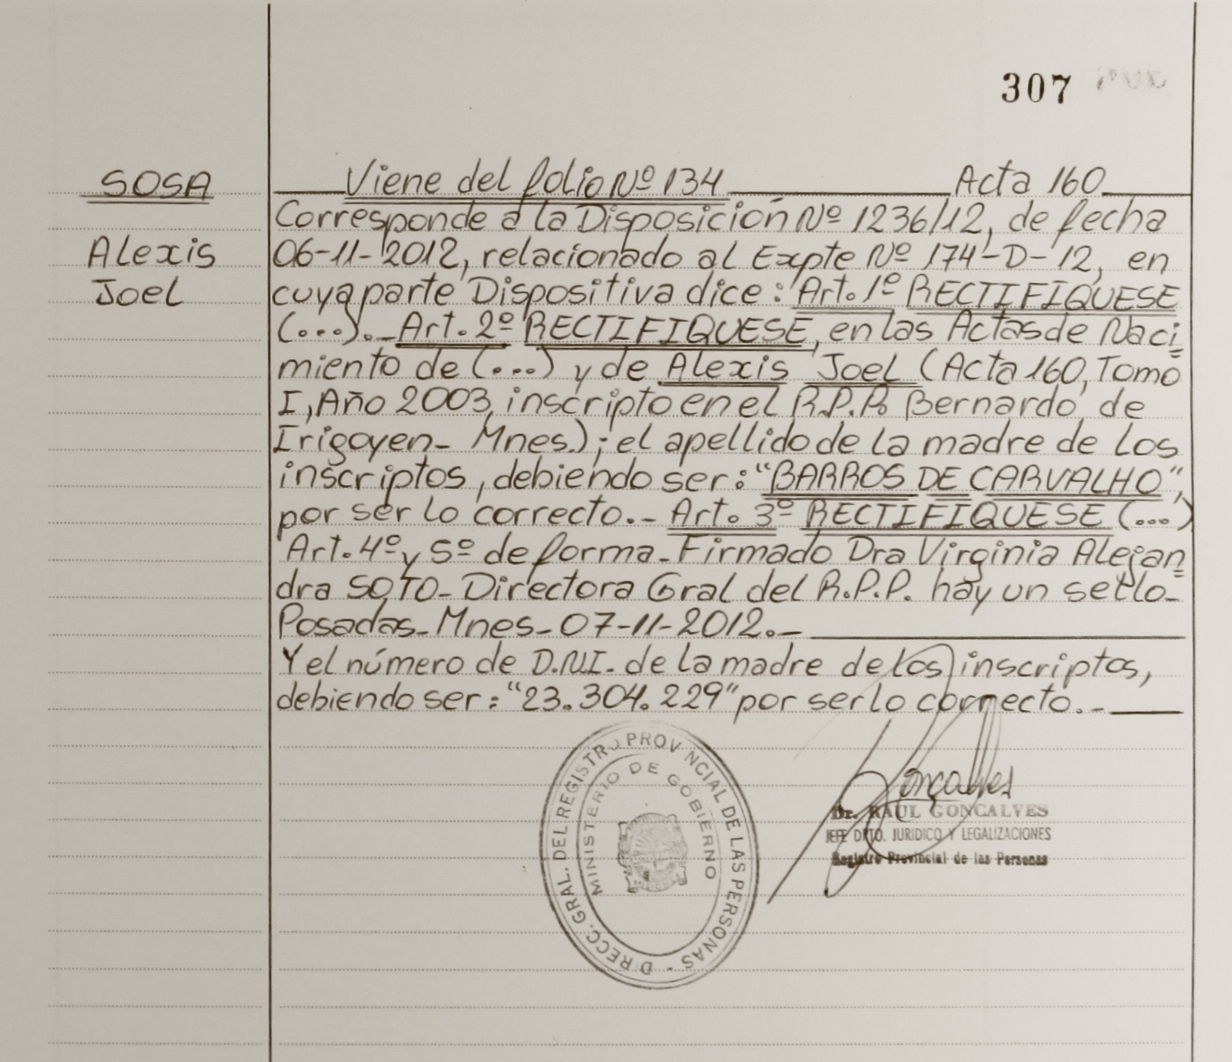 307
SOSA
Alexis
Joel
Viene del folio Nº 134 Acta 160
Corresponde a la Disposición Nº 1236/12, de fecha
06-11-2012, relacionado al Expte Nº 174-D-12, en
cuya parte Dispositiva dice: Art. 1º RECTIFIQUESE
(...).- Art. 2º RECTIFIQUESE, en las Actas de Naci
miento de (...) y de Alexis Joel (Acta 160, Tomo
I, Año 2003, inscripto en el R.P.P. Bernardo de
Irigoyen- Mnes.); el apellido de la madre de los
inscriptos, debiendo ser: "BARROS DE CARVALHO",
por ser lo correcto.- Art. 3º RECTIFIQUESE (...)
Art. 4º y 5º de forma- Firmado Dra Virginia Alejan
dra SOTO- Directora Gral del R.P.P. hay un sello-
Posadas- Mnes- 07-11-2012.-
Y el número de D.N.I. de la madre de los inscriptos,
debiendo ser: "23.304.229" por ser lo correcto.-
DIRECC. GRAL. DEL REGISTRO PROVINCIAL DE LAS PERSONAS -
MINISTERIO DE GOBIERNO
Gonçalves
Dr. RAUL GONCALVES
JEFE DPTO. JURIDICO Y LEGALIZACIONES
Registro Provincial de las Personas